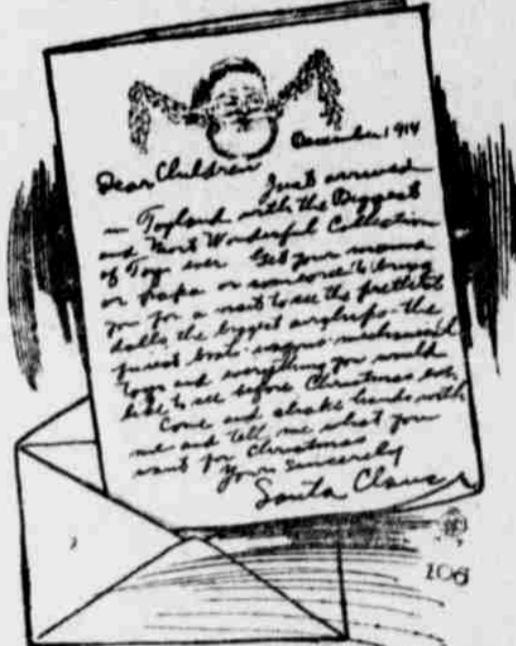 December 1914
Dear Children
Just arrived
in Toyland with the Biggest
and Most Wonderful Collection
of Toys ever Get your mamma
or papa or someone to bring
you for a visit to see the prettiest
dolls the biggest airships - the
boats - wagons - mechanical
toys and everything you would
like to see before Christmas eve,
Come and shake hands with
me and tell me what you
want for Christmas
Yours Sincerely
Santa Claus
106